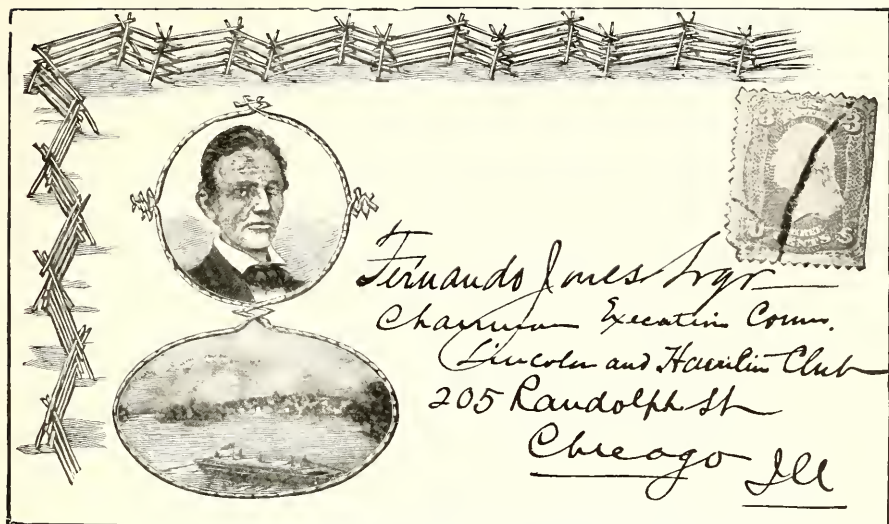 3 3
U THREE CENTS S
Fernando Jones Esqr
Chairman Executive Comm.
Lincoln and Hamlin Club
205 Randolph St
Chicago
Ill